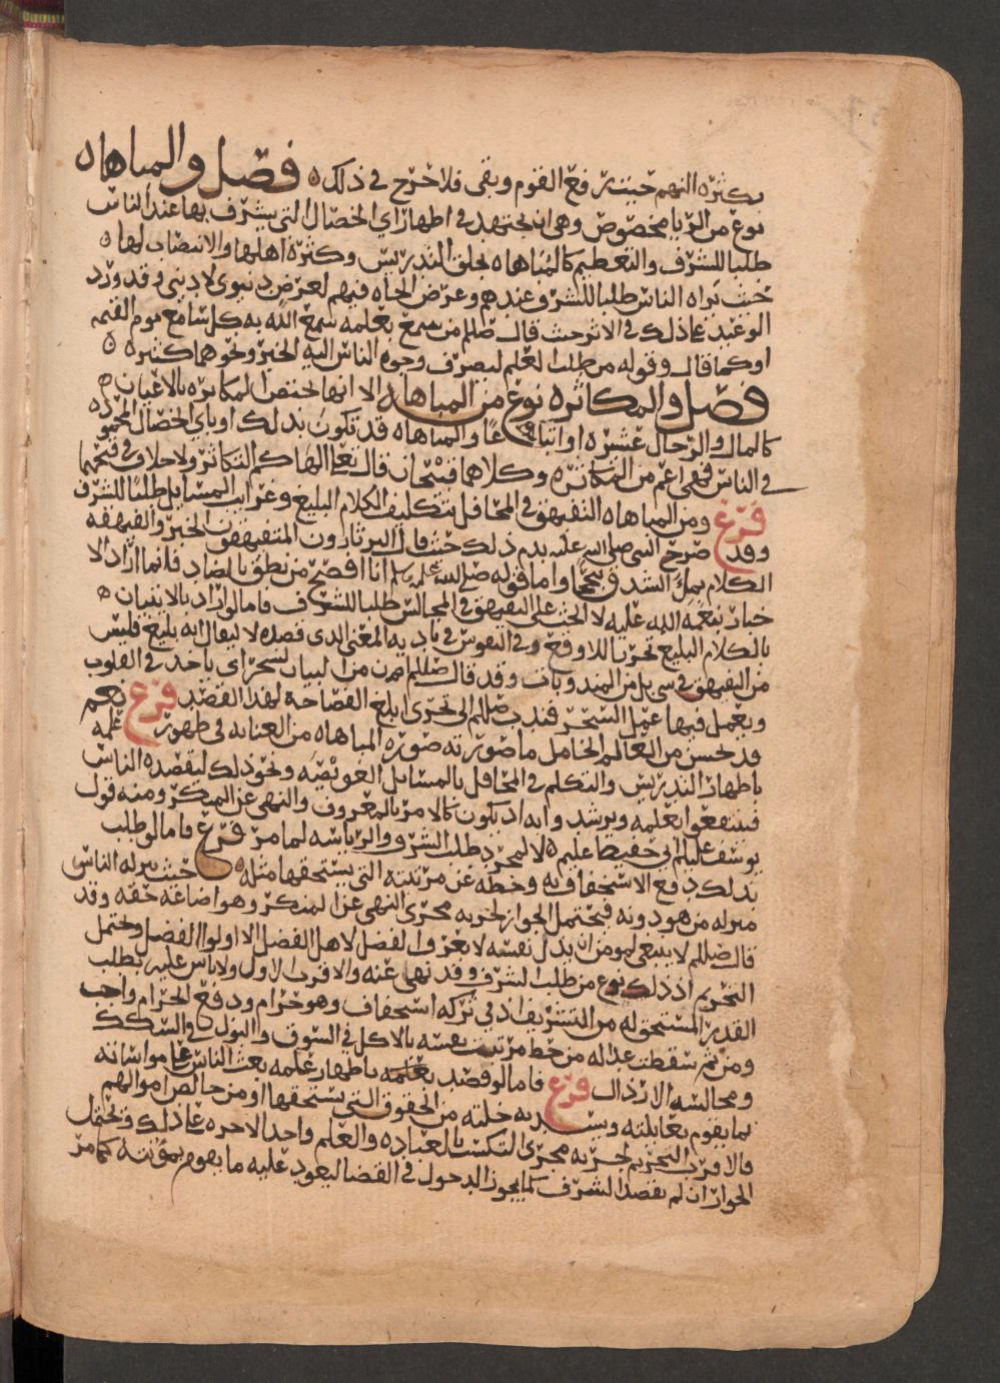 بكثرة التهم حينئذ رفع القوم وبقى فلا حرج في ذلك ه فصل والمباهاه
نوع من الريا مخصوص وهي ان يجتهد في اظهار اي الخصال التي يشرف بها عند الناس
طلبا للشرف والتعظيم كالمباهاه بحلق التدريس وكثرة اهلها والانتصاب لها ه
حيث يراه الناس طلبا للشرف عندهم وعرض الجاه فيهم لغرض دنيوي لا ديني وقد ورد
الوعيد على ذلك في الاثر حيث قال صللم من سمع بعلمه سمع الله به كل سامع يوم القيمه
او كما قال وقوله من طلب العلم ليصرف وجوه الناس اليه الخبر ونحوهما كثيره ه
فصل والمكاثره نوع من المباهاه الا انها تختص المكاثره بالاعيان ه
كالمال والرجال عشيره او اتباعا والمباهاه قد تكون بذلك او باي الخصال المحموده
في الناس فهي اعم من المكاثره وكلاهما قبيحان قال تعا الهاكم التكاثر ولا خلاف في قبحهما
فرع ومن المباهاه التفيهق في المحافل بتكليف الكلام البليغ وغرايب المسايل طلبا للشرف
وقد صرح النبي صلى الله عليه بذم ذلك حيث قال الثرثارون المتفيهقون الخبر والفيهقه
الكلام بملء الشدق تبجحا واما قوله صلى الله عليه وسلم انا افصح من نطق بالضاد فانما اراد الا
خبار بنعمة الله عليه لا الحث على التفيهق في المجالس طلبا للشرف فاما لو اراد بالاتيان ه
بالكلام البليغ تحريا للاوقع في النفوس في تاديه المعنى الذي قصده لا ليقال انه بليغ فليس
من التفيهق في شي بل من المندوبات وقد قال صللم ان من البيان لسحرا اي ياخذ في القلوب
ويعمل فيها عمل السحر فندب صللم الى تحري ابلغ الفصاحة لهذا القصد فرع نعم
قد يحسن من العالم الخامل ما صورته صورة المباهاه من العنايه في ظهور علمه
باظهار التدريس والتكلم في المحافل بالمسايل العويصه ونحو ذلك ليقصده الناس
فينتفعوا بعلمه ويرشد وانه اذ يكون كالامر بالمعروف والنهي عن المنكر ومنه قول
يوسف عليلم اني حفيظ عليم ه لا لمجرد طلب الشرف والرياسه لما مر فرع فاما لو طلب
بذلك دفع الاستخفاف به وحطه عن مرتبته التي يستحقها مثله ه حيث ينزله الناس
منزله من هو دونه فيحتمل الجواز لجريه مجرى النهي عن المنكر وهو اضاعة حقه وقد
قال صللم لا ينبغي لمومن ان يذل نفسه لا يعرف الفضل لاهل الفضل الا اولوا الفضل ويحتمل
التحريم اذ ذلك نوع من طلب الشرف وقد نهي عنه والاقرب الاول ولا باس عليه بطلب
القدر المستحق له من التشريف اذ في تركه استخفاف وهو حرام ودفع الحرام واجب
ومن ثم سقطت عدالة من حط مرتبت نفسه بالاكل في السوق والبول في السكك
ومجالسة الارذال فرع فاما لو قصد بعلمه باظهار علمه بعث الناس على مواساته
بما يقوم بعايلته ويسد به خلته من الحقوق التي يستحقها او من خالص اموالهم
فالاقرب التحريم لجريه مجرى التكسب بالعباده والعلم واخذ الاجره على ذلك ويحتمل
الجواز ان لم يقصد الشرف كما يجوز الدخول في القضا ليعود عليه ما يقوم بمؤنته كما مر